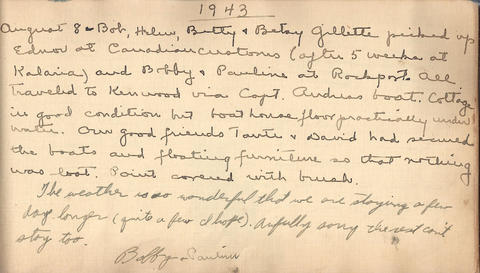 1943
August 8 - Bob, Helen, Betty & Betsy Gillette picked up
Ednor at Canadian customs (after 5 weeks at
Kalaria) and Bobby & Pauline at Rockport. All
Traveled to Kenwood via Capt. Andress boat. Cottage
in good condition but boat house floor practically under
water. Our good friends & David had secured
the boats and floating furniture so that nothing
was lost. Point covered with brush.
The weather is so wonderful that we are staying a few
days longer (quite a few I hope). Awfully sorry the rest can't
stay too.
Bobby & Pauline